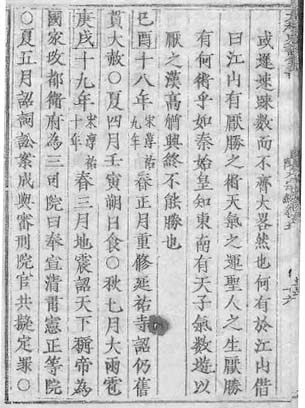 或遲速踈數而不齊大畧然也何有於江山借
曰江山有厭勝之術天氣之運聖人之生厭勝
有何術乎如秦始皇知東南有天子氣數遊以
厭之漢高興終不能勝也
己酉十八年宋淳祐九年春正月重修延祐寺詔仍舊
貫大赦○夏四月壬寅朔日食○秋七月大雨雹
庚戌十九年宋淳祐十年春三月地震詔天下稱帝為
國家攻都衛府為三司院曰奉宣清肅憲正等院
○夏五月詔詞訟案成與審刑院官共擬定罪○